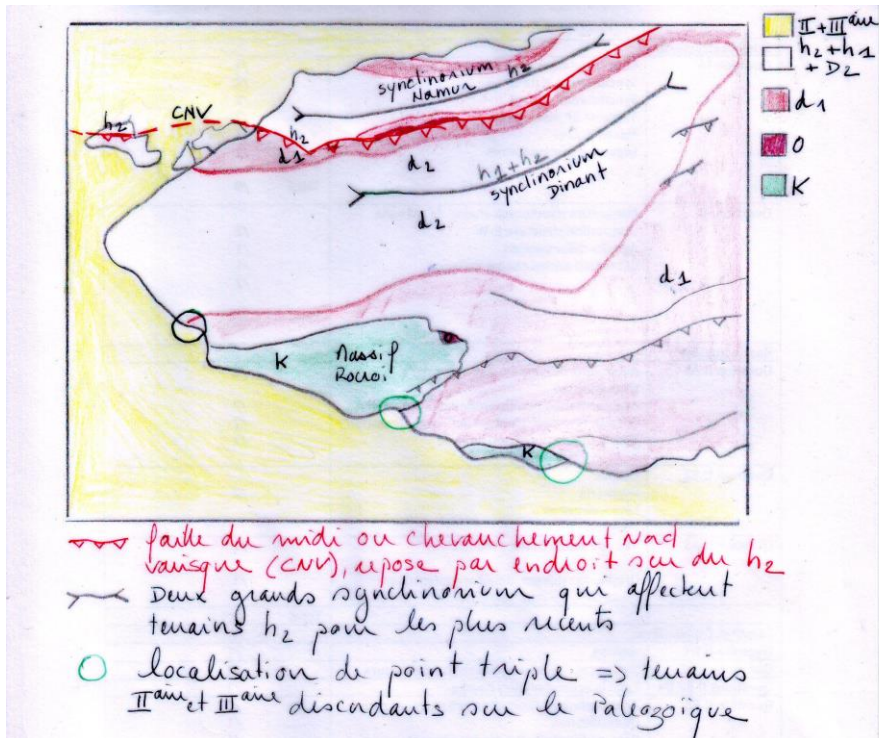 II + III aire
h2 + h1
+ D2
d1
O
K
synclinorium
Namur
h2
CNV
h2
h2
d1
d2
h1+h2
synclinorium
Dinant
d2
d1
K
Massif
Rocroi
K
faille du midi ou chevauchement Nord
varisque (CNV), repose par endroit sur du h2
Deux grands synclinorium qui affectent
terrains h2 pour les plus récents
localisation de point triple => terrains
II aire et III aire discordants sur le Paléozoïque